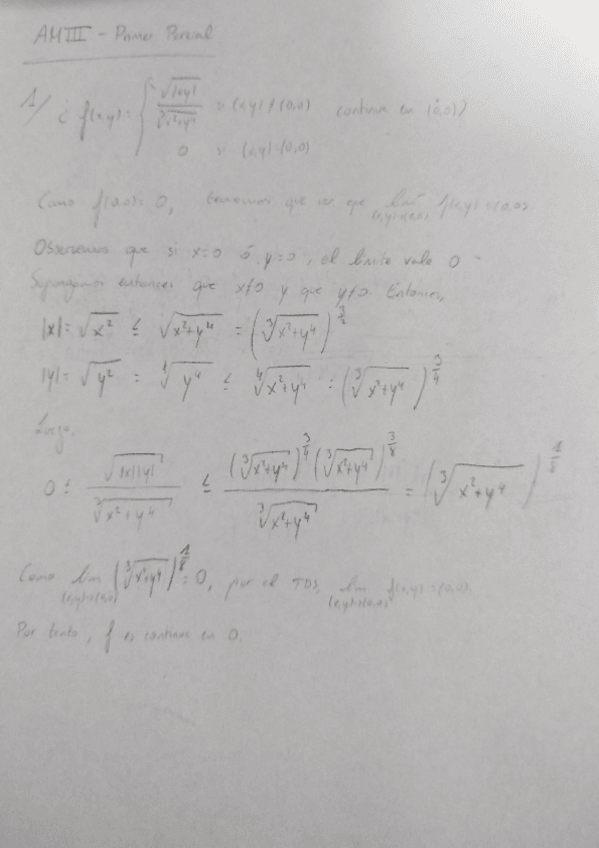 AM III - Primer Parcial
1/ ¿ f(x,y) = { √|xy| / ∛(x²+y⁴) si (x,y) ≠ (0,0) continua en (0,0)?
0 si (x,y) = (0,0)
Como f(0,0) = 0, tenemos que ver que lim (x,y)→(0,0) f(x,y) = (0,0)
Observemos que si x=0 ó y=0, el límite vale 0
Supongamos entonces que x≠0 y que y≠0. Entonces,
|x| = √x² ≤ √(x²+y⁴) = (∛(x²+y⁴))^(3/2)
|y| = √y² = ∜y⁴ ≤ ∜(x²+y⁴) = (∛(x²+y⁴))^(3/4)
Luego,
0 ≤ √(|x||y|) / ∛(x²+y⁴) ≤ (∛(x²+y⁴))^(3/4) (∛(x²+y⁴))^(3/8) / ∛(x²+y⁴) = (∛(x²+y⁴))^(1/8)
Como lim (x,y)→(0,0) (∛(x²+y⁴))^(1/8) = 0, por el TDS, lim (x,y)→(0,0) f(x,y) = (0,0)
Por tanto, f es continua en 0.